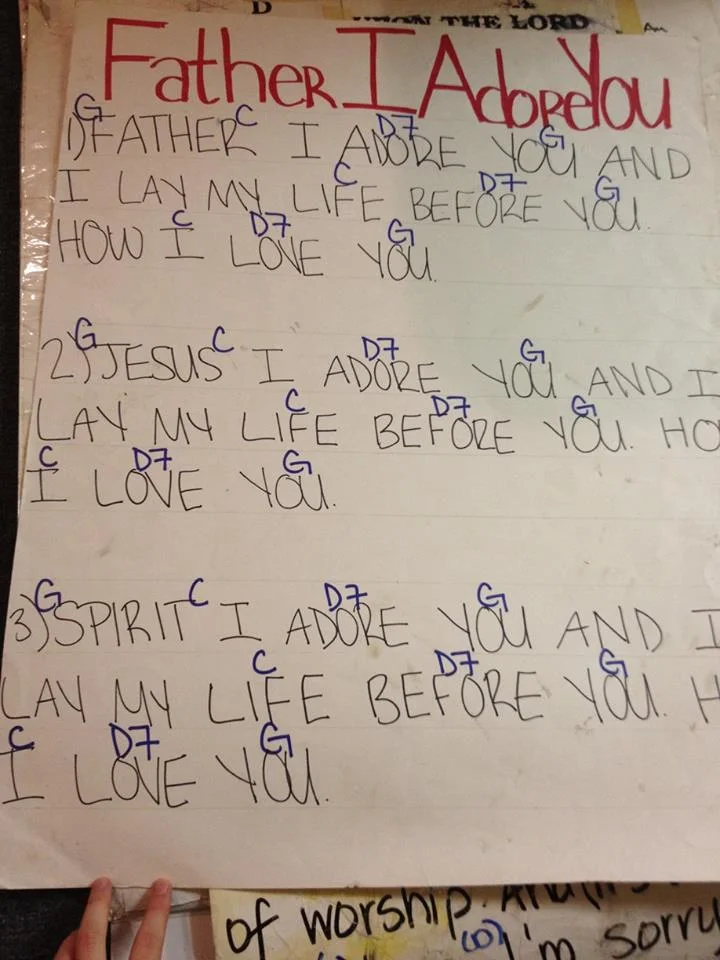 D THE LORD Am
Father I Adore You
G C D7 G
1) FATHER I ADORE YOU AND
C D7 G
I LAY MY LIFE BEFORE YOU.
C D7 G
HOW I LOVE YOU.
G C D7 G
2) JESUS I ADORE YOU AND I
C D7 G
LAY MY LIFE BEFORE YOU. HO
C D7 G
I LOVE YOU.
G C D7 G
3) SPIRIT I ADORE YOU AND I
C D7 G
LAY MY LIFE BEFORE YOU. H
C D7 G
I LOVE YOU.
of worship.
(D) I'm sorry